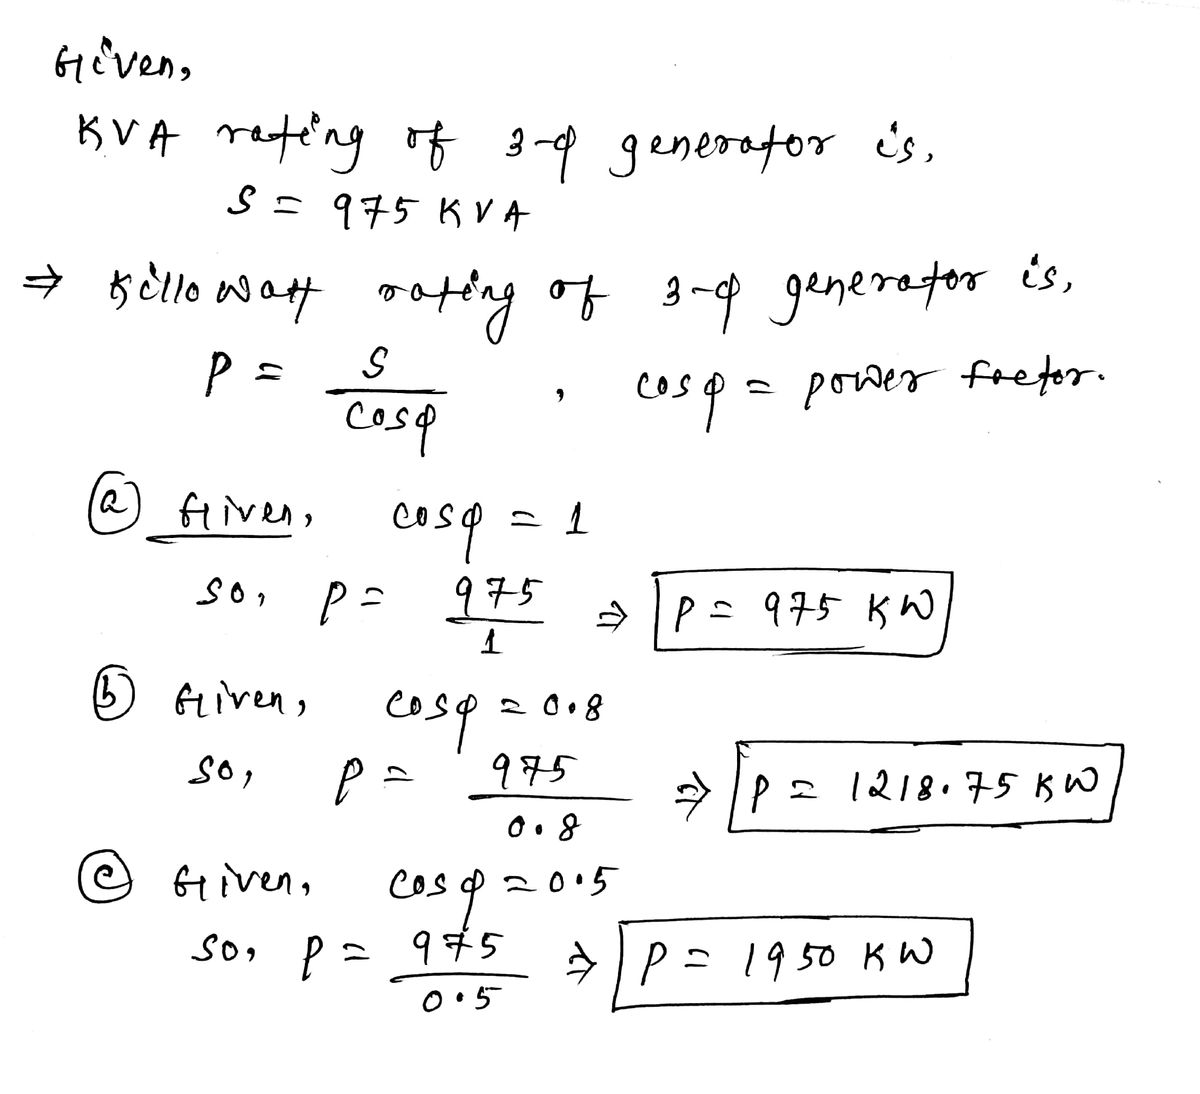 Given,
KVA rating of 3-φ generator is,
S = 975 KVA
⇒ Killowatt rating of 3-φ generator is,
P = S / cosφ , cosφ = power factor.
(a) Given, cosφ = 1
so, P = 975 / 1 ⇒ P = 975 KW
(b) Given, cosφ = 0.8
so, P = 975 / 0.8 ⇒ P = 1218.75 KW
(c) Given, cosφ = 0.5
so, P = 975 / 0.5 ⇒ P = 1950 KW